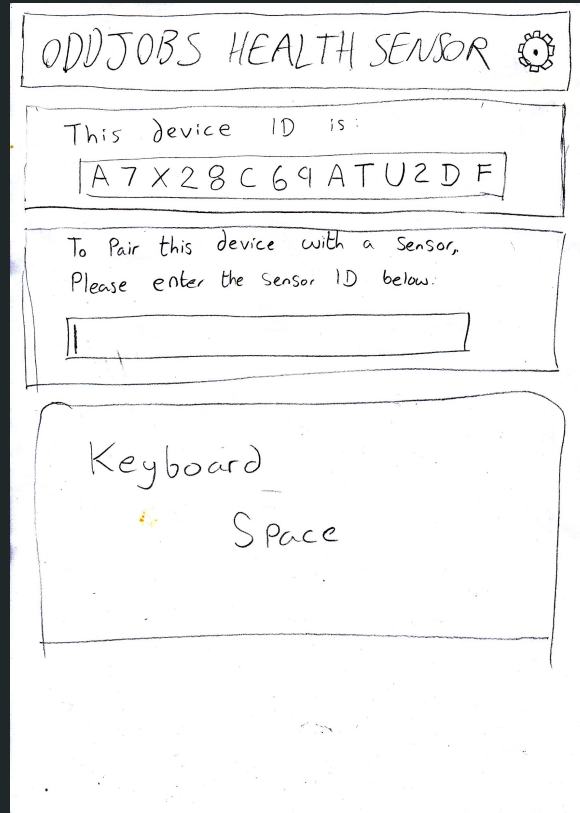 ODDJOBS HEALTH SENSOR
This device ID is:
A7X28C69ATU2DF
To Pair this device with a Sensor,
Please enter the Sensor ID below:
Keyboard
Space